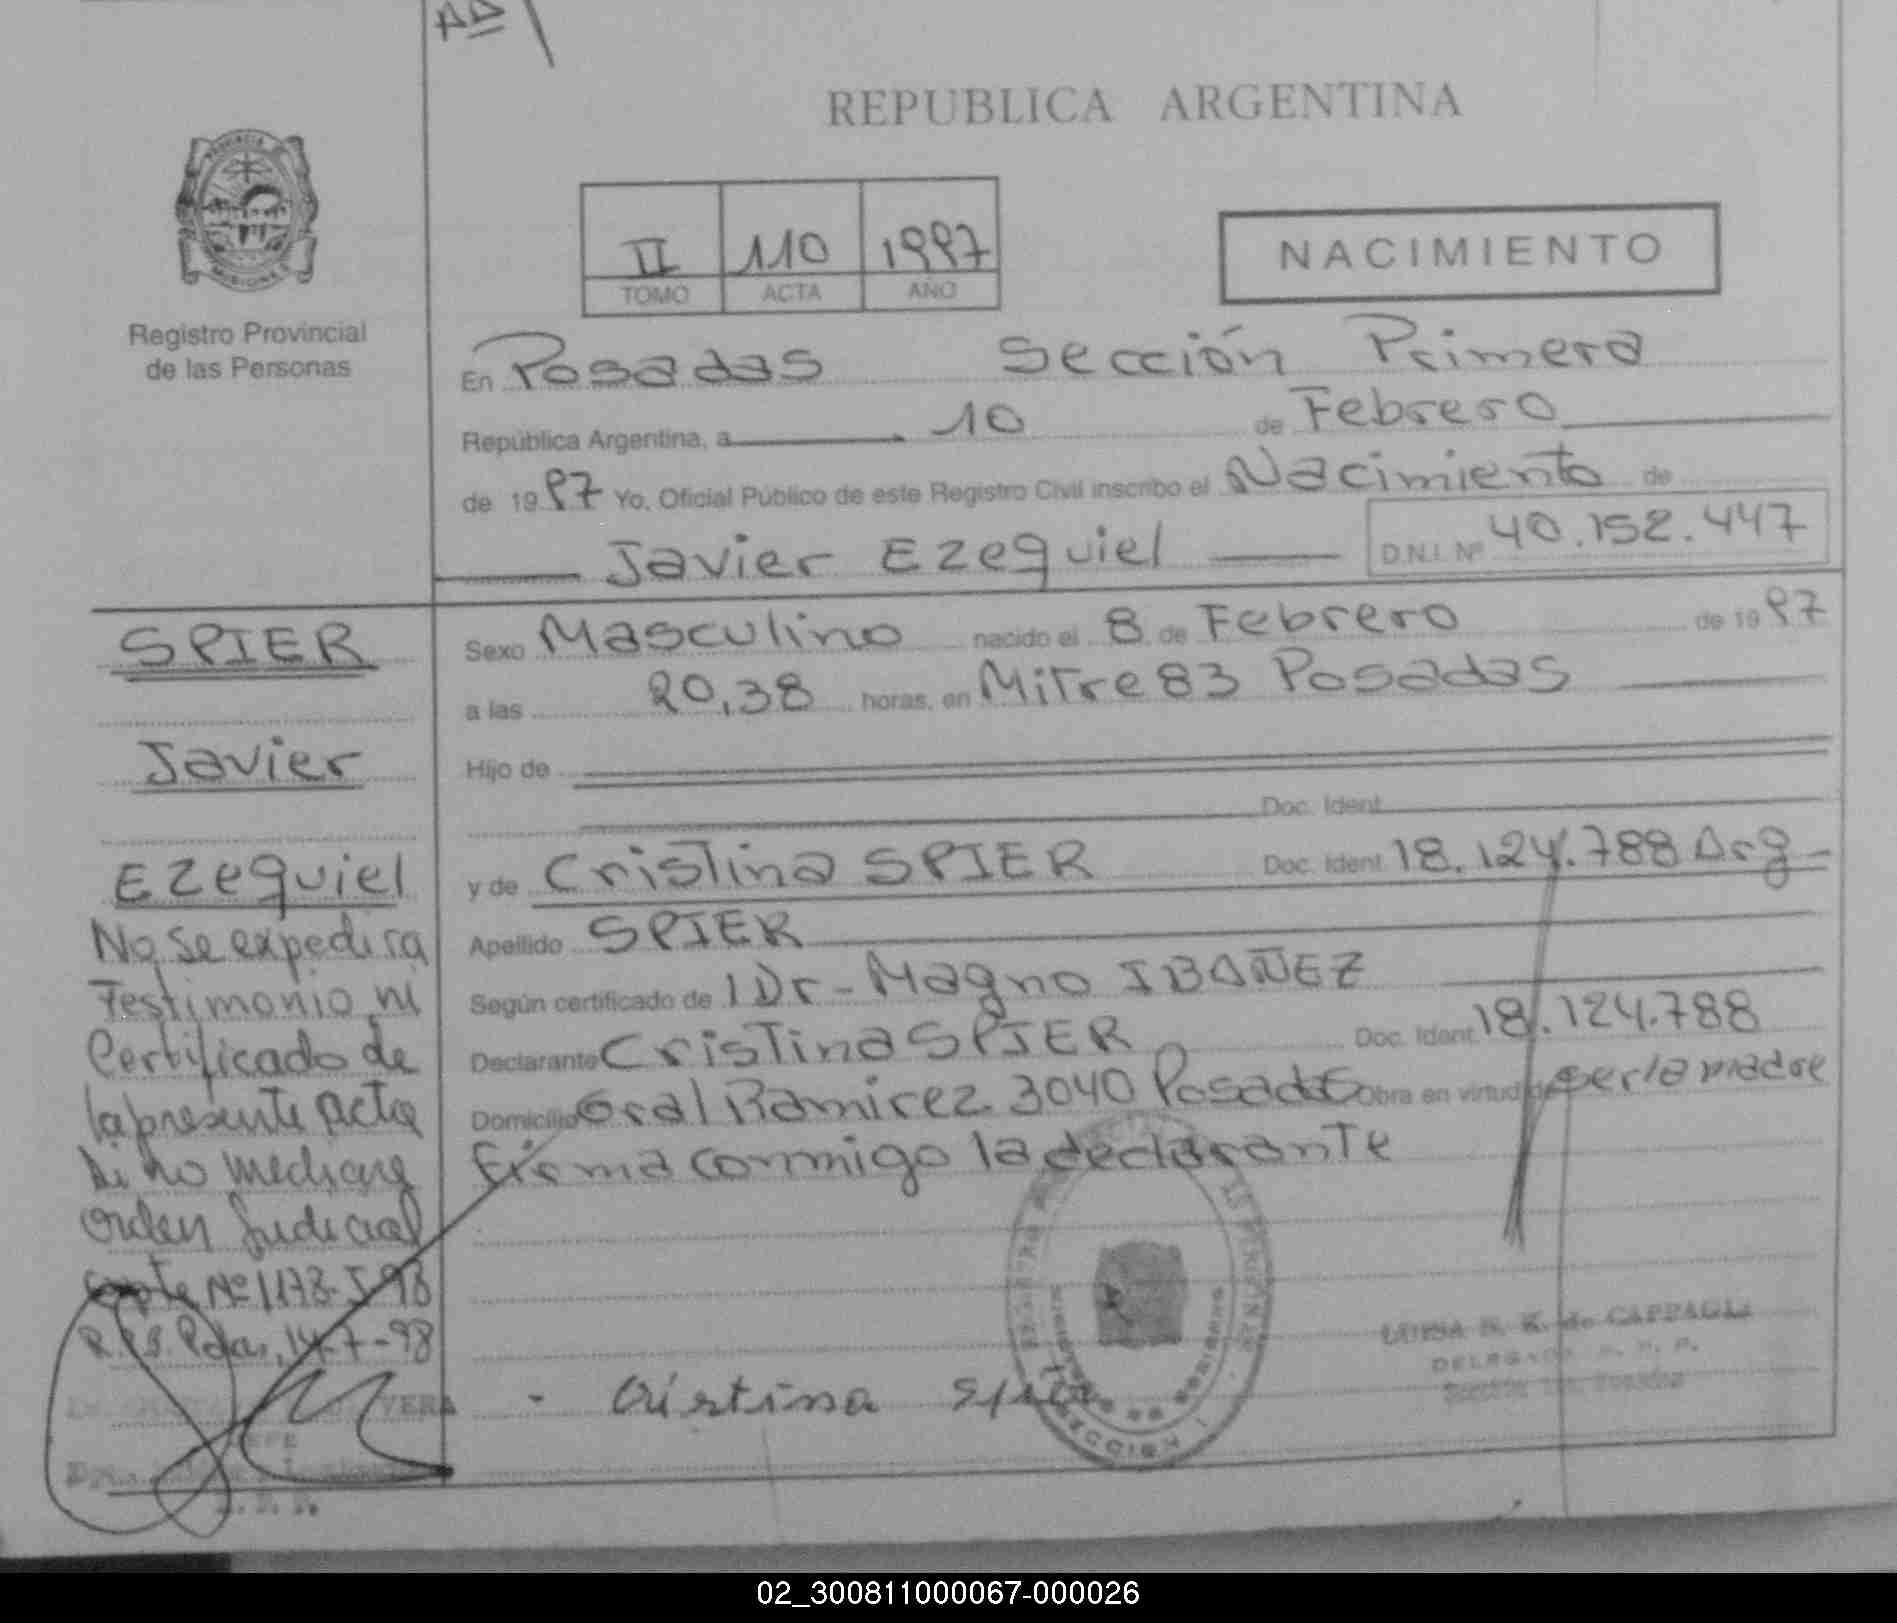 AD
REPUBLICA ARGENTINA
PROVINCIA
MISIONES
II 110 1997
TOMO ACTA AÑO
NACIMIENTO
Registro Provincial
de las Personas
En Posadas Sección Primera
República Argentina, a 10 de Febrero
de 1997 Yo, Oficial Público de este Registro Civil inscribo el Nacimiento de
Javier Ezequiel D.N.I. Nº 40.152.447
SPIER
Javier
Ezequiel
No se expedira
Testimonio ni
Certificado de
la presente acta
si no mediare
orden Judicial
Expte Nº 1173-J-98
R.P.S. Pdas, 14-7-98
Sexo Masculino nacido el 8 de Febrero de 1997
a las 20,38 horas, en Mitre 83 Posadas
Hijo de
Doc. Ident.
y de Cristina SPIER Doc. Ident. 18.124.788 Arg
Apellido SPIER
Según certificado de Dr- Magno IBAÑEZ
Declarante Cristina SPIER Doc. Ident. 18.124.788
Domicilio Gral Ramirez 3040 Posadas Obra en virtud de ser la madre
Firma conmigo la declarante
LUISA R. K. de CAPPAGLI
DELEGADA R. P. P.
Sección 1ra. Posadas
- Cristina Spier
SECCION 1
JEFE
02_300811000067-000026